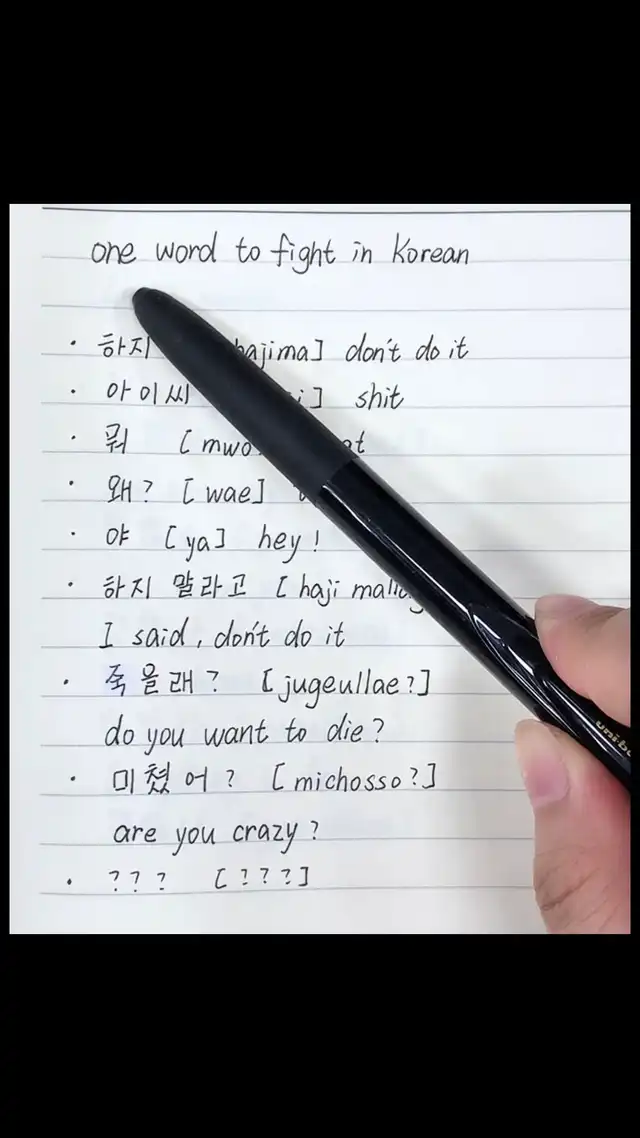 one word to fight in Korean
· 하지 hajima] don't do it
· 아이씨 ] shit
· 뭐 [mwo
· 왜? [wae]
· 야 [ya] hey!
· 하지 말라고 [haji
I said, don't do it
· 죽을래? [jugeullae?]
do you want to die?
· 미쳤어? [michosso?]
are you crazy?
· ??? [???]